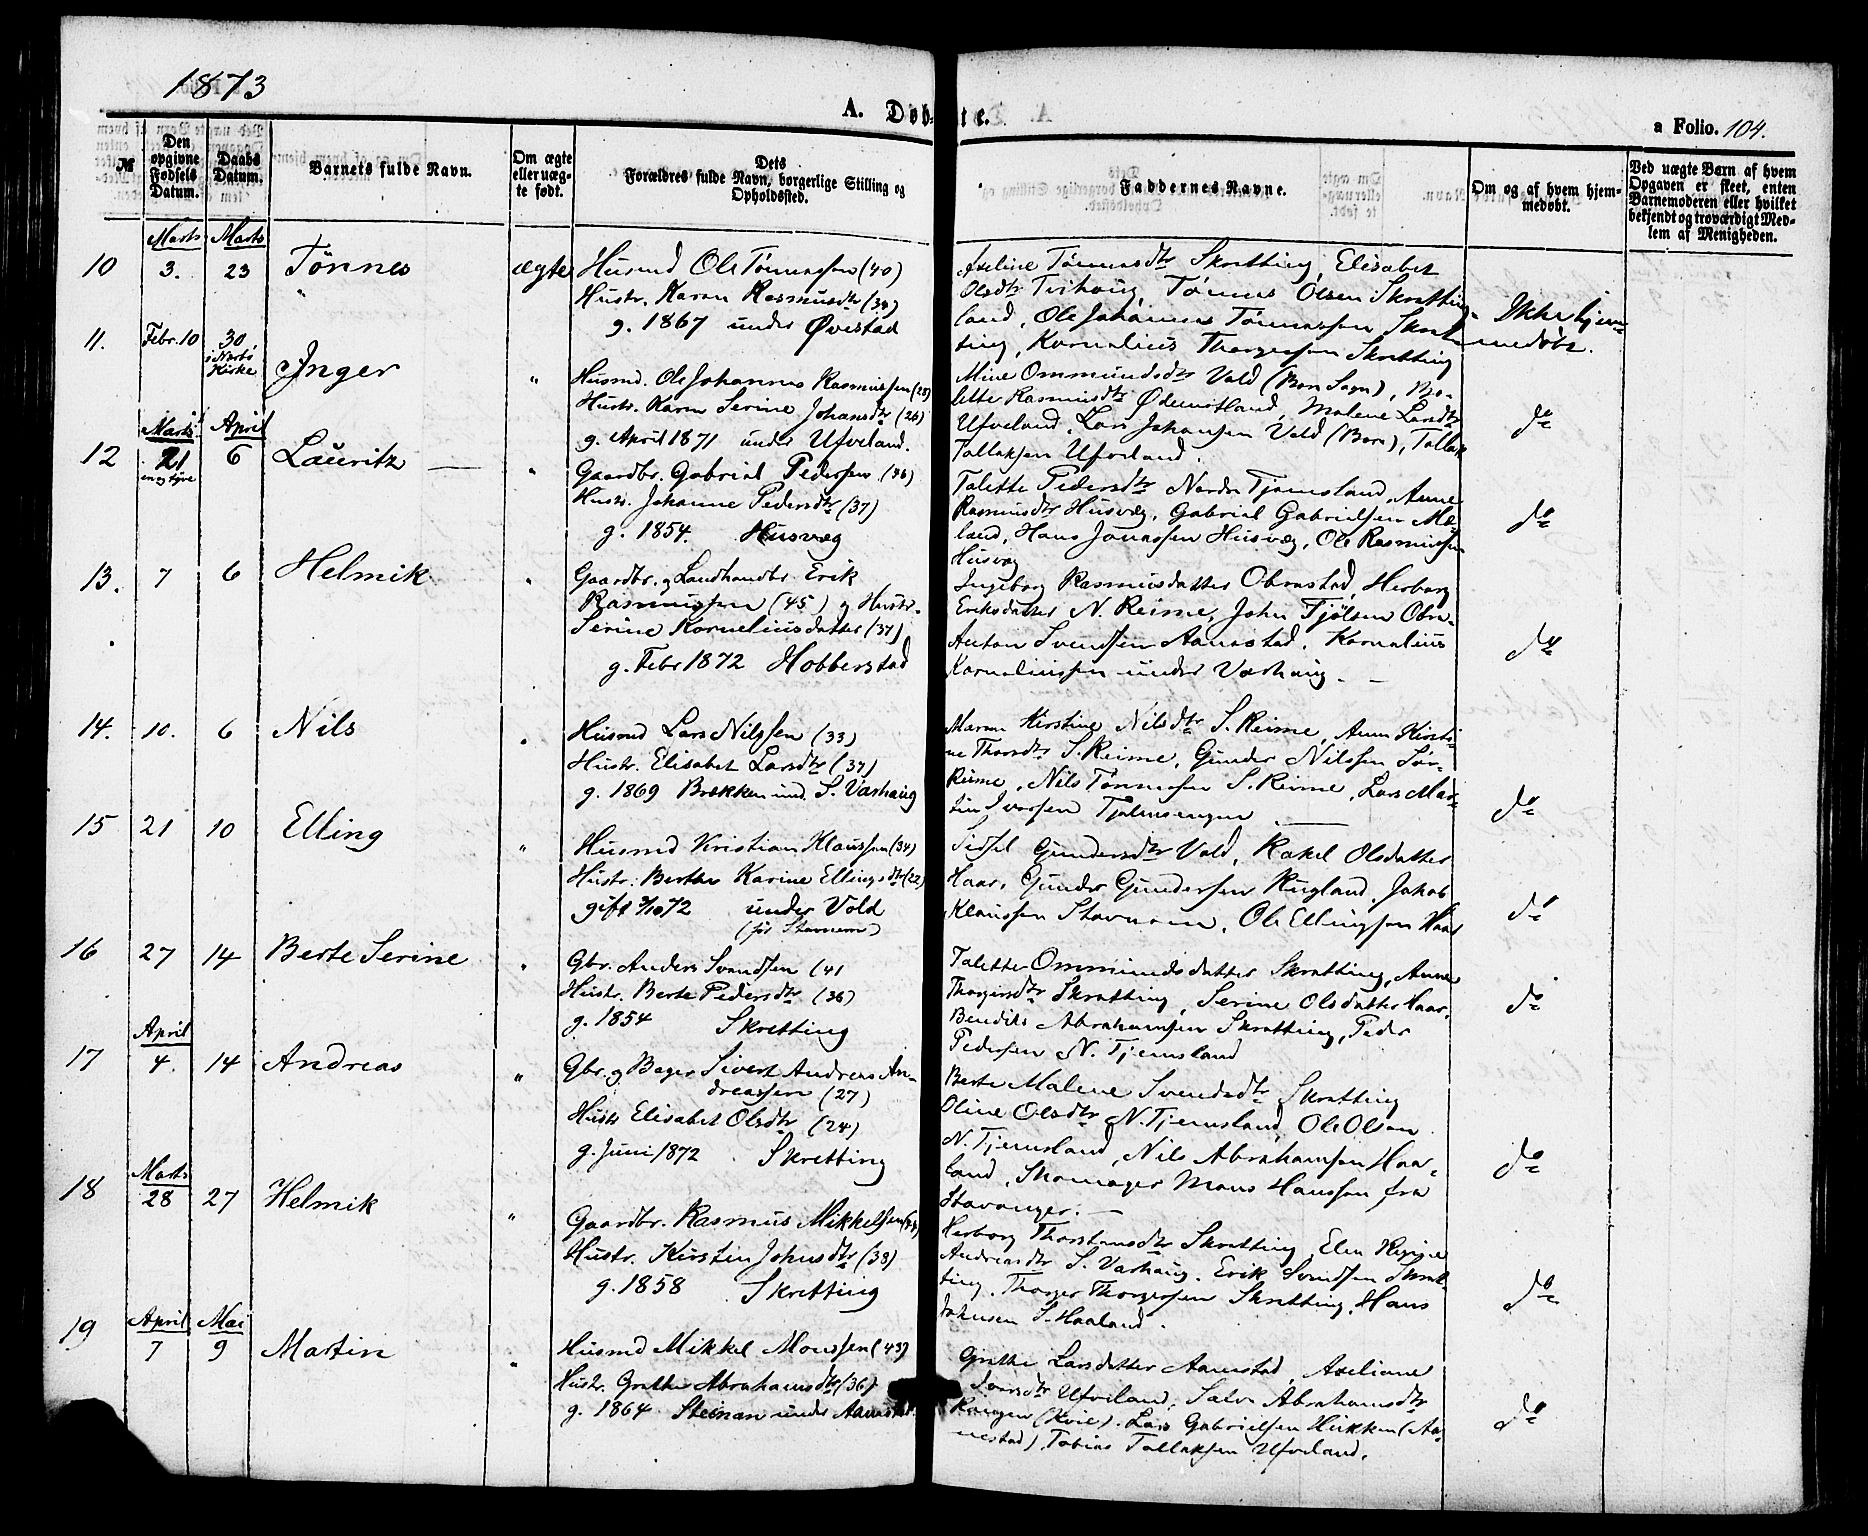 1873
A. Døbte.
a Folio. 104.
№
Den opgivne Fødsels Datum.
Daabs Datum.
Barnets fulde Navn.
Om ægte eller uægte født.
Dets Forældres fulde Navn, borgerlige Stilling og Opholdssted.
Faddernes Navne.
Om og af hvem hjemmedøbt.
Ved uægte Barn af hvem Opgaven er skeet, enten Barnemoderen eller hvilket bekjendt og troværdigt Medlem af Menigheden.
Marts Marts
10 3. 23 Tönnes ægte
Husmd Ole Tönnessen (40)
Hustr. Karen Rasmusdtr (34)
g. 1867 under Øvestad
Axeline Tönnesdtr Skretting, Elisabet
Olsdtr Tvihoug, Tönnes Olsen Skretting
land, Ole Johannes Tönnessen Skret-
ting, Kornelius Thorgersen Skretting
Ikke hjem-
medøbt.
11. Febr. 10 30 i Narbö Kirke Inger "
Husmd. Ole Johannes Rasmussen (28)
Hustr. Karen Serine Johansdtr (26)
g. April 1871 under Ufveland.
Mine Ommundsdtr Vold (Bore Sogn), Bo-
lette Rasmusdtr Ødemotland, Malene Larsdtr
Ufveland, Lars Johansen Vold (Bore), Tollak
Tollaksen Ufveland.
do
Marts April
12 21 en og tyve 6 Lauritz "
Gaardbr. Gabriel Pedersen (36)
Hustr. Johanne Pedersdtr (37)
g. 1854. Husvæg
Talette Pedersdtr Nordr Tjemsland, Anne
Rasmusdtr Husvæg, Gabriel Gabrielsen Mæ-
land, Hans Jonassen Husvæg, Ole Rasmussen
Husvæg
do
13. 7 6 Helmik "
Gaardbr. og Landhandlr Erik
Rasmussen (45) og Hustr.
Serine Korneliusdatter (37)
g. Febr 1872 Hobberstad
Ingeborg Rasmusdatter Obrestad, Herborg
Eriksdatter N. Reime, John Tjölsen Obre-
Anton Svendsen Aanestad, Kornelius
Korneliussen under Varhaug.
do
14. 10. 6 Nils "
Husmd Lars Nilssen (33)
Hustr. Elisabet Larsdtr (37)
g. 1869 Brekken und. S. Varhaug
Maren Kirstine Nilsdtr S. Reime, Anne Kirsti-
ne Thorsdtr S. Reime, Gunder Nilssen Sör-
Reime, Nils Tönnesen S. Reime, Lars Mar-
tin Ivarsen
do
15 21 10 Elling "
Husmd Kristian Klaussen (34)
Hustr. Berthe Karine Ellingsdtr (22)
gift 9/10 72 under Vold
(før Stavnem)
Sidsel Gundersdtr Vold, Rakel Olsdatter
Haar, Gunder Gundersen Rugland, Jakob
Klaussen Stavnem, Ole Ellingsen Haar
do
16 27 14 Berte Serine "
Gbr. Anders Svendsen (41
Hustr. Berte Pedersdtr (36)
g. 1854 Skretting
Talette Ommundsdatter Skretting, Anne
Thorgersdtr Skretting, Serine Olsdatter Haar,
Bendiks Abrahamsen Skretting, Peder
Pedersen N. Tjemsland
do
April
17 4. 14 Andreas "
Gbr. og Bager Sivert Andreas An-
dreassen (27)
Hustr Elisabet Olsdtr (24)
g. Juni 1872 Skretting
Berte Malene Svendsdtr Skretting
Oline Olsdtr N. Tjemsland, Ole Olsen
N. Tjemsland, Nils Abrahamsen Haa-
land, Skomager Mons Hanssen fra
Stavanger.
do
Marts
18 28 27 Helmik "
Gaardbr. Rasmus Mikkelsen
Hustr. Kirsten Johnsdtr (38)
g. 1858 Skretting
Herborg Thorstensdtr Skretting, Elen Regine
Andreasdtr S. Varhaug, Erik Svendsen Skret-
ting, Thorger Thorgersen Skretting, Hans
Johnsen S. Haaland.
do
April Mai
19 7 9 Martin "
Husmd Mikkel Monssen (43)
Hustr. Grethe Abrahamsdtr (36)
g. 1864 Steinan under Aanestad.
Grethe Larsdatter Aanestad, Axeliane
Ivarsdtr Ufveland, Salve Abrahamsdtr
(Kvie), Lars Gabrielsen Hikken (Aa-
nestad), Tobias Tollaksen Ufveland.
do